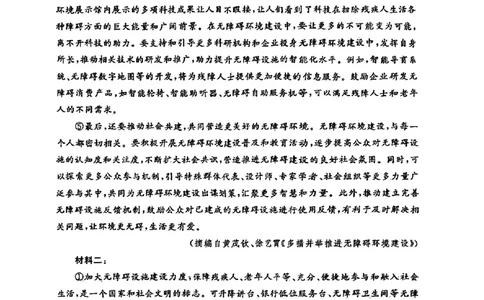 环境展示馆内展示的多项科技成果让人目不暇接,让人们看到了科技在扫除残疾人生活各
种障碍方面的巨大能量和广阔前景。在无障碍环境建设中,要让更多的不可能变为可能,
离不开科技的助力。要支持和引导更多科研机构和企业投身无障碍环境建设中,发挥自身
所长,推动相关技术的研发和推广,助力提升无障碍设施的智能化水平。例如,智能导盲系
统、无障碍数字地图等的开发,将为残障人士提供更加便捷的信息服务。鼓励企业研发无
障碍消费产品,如智能轮椅、智能助听器、无障碍自助服务机等,可以满足残障人士和老年
人的不同需求。
⑤最后,还要推动社会共建,共同营造更美好的无障碍环境。无障碍环境建设,与每一
个人都密切相关。要积极开展无障碍环境建设普及和教育活动,逐步提高公众对无障碍设
施的认知度和关注度,不断扩大社会共识,营造推进无障碍建设的良好社会氛围。同时,可
以探索更多公众参与机制,引导特殊群体代表、设计师、专家学者、社会组织等更多力量广
泛参与其中,共同为无障碍环境建设出谋划策,汇聚更多智慧和力量。此外,推动建立完善
无障碍设施反馈机制,鼓励公众对已建成的无障碍设施进行使用反馈,有利于及时解决相
关问题,让环境更无碍,生活更有爱。
(摘编自黄茂钦、徐艺霄《多措并举推进无障碍环境建设》)
材料二:
①加大无障碍设施建设力度,保障残疾人、老年人平等、充分、便捷地参与和融入社会
生活,是一个国家和社会文明的标志。可升降讲台、银行低位服务台、无障碍卫生间等无障